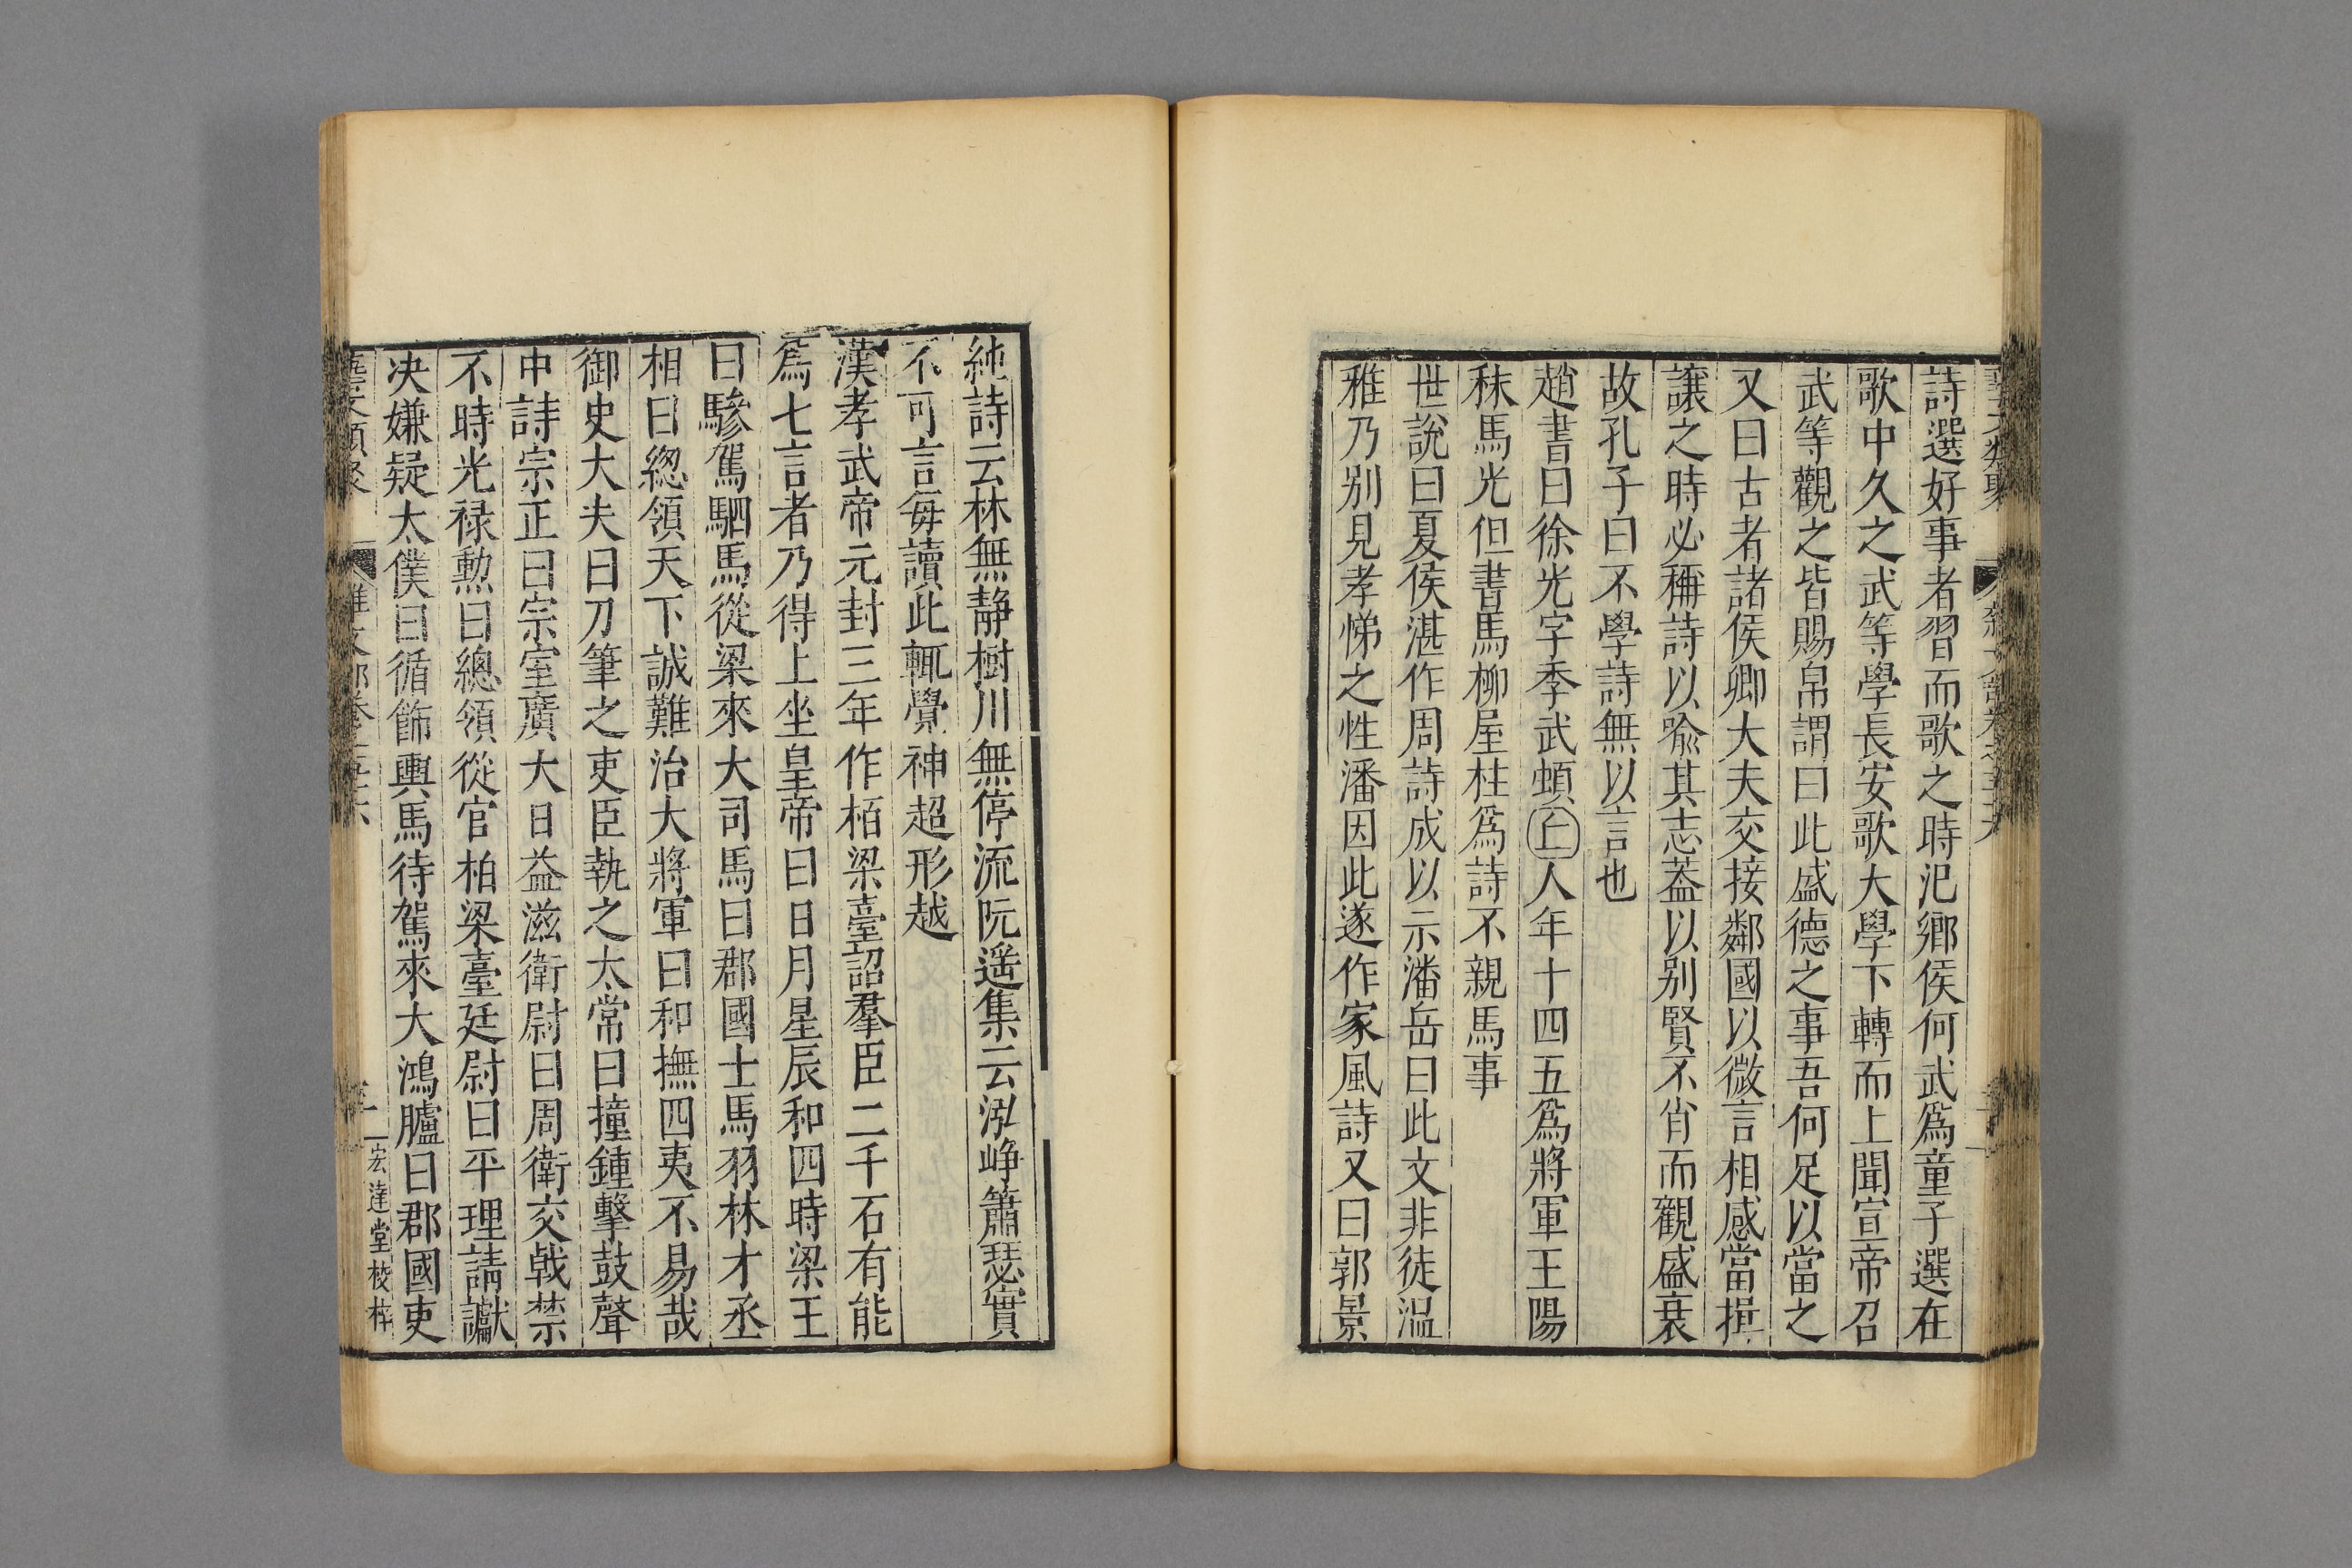 詩選好事者習而歌之時汜鄉侯何武爲童子選在
歌中久之武等學長安歌大學下轉而上聞宣帝召
武等觀之皆賜帛謂曰此盛德之事吾何足以當之
又曰古者諸侯卿大夫交接鄰國以微言相感當揖
讓之時必稱詩以喻其志葢以別賢不肖而觀盛衰
故孔子曰不學詩無以言也
趙書曰徐光字季武頓丘人年十四五爲將軍王陽
秣馬光但書馬柳屋柱爲詩不親馬事
世說曰夏侯湛作周詩成以示潘岳曰此文非徒温
雅乃別見孝悌之性潘因此遂作家風詩又曰郭景
純詩云林無静樹川無停流阮遥集云泓崢簫瑟實
不可言每讀此輒覺神超形越
漢孝武帝元封三年作栢梁臺詔羣臣二千石有能
爲七言者乃得上坐皇帝曰日月星辰和四時梁王
曰驂駕駟馬從梁來大司馬曰郡國士馬羽林才丞
相曰總領天下誠難治大將軍曰和撫四夷不易哉
御史大夫曰刀筆之吏臣執之太常曰撞鍾擊鼓聲
中詩宗正曰宗室廣大日益滋衛尉曰周衛交戟禁
不時光祿勲曰總領從官柏梁臺廷尉曰平理請讞
决嫌疑太僕曰循飾輿馬待駕來大鴻臚曰郡國吏
藝文類聚 雜文部卷之五十六 宏達堂校梓